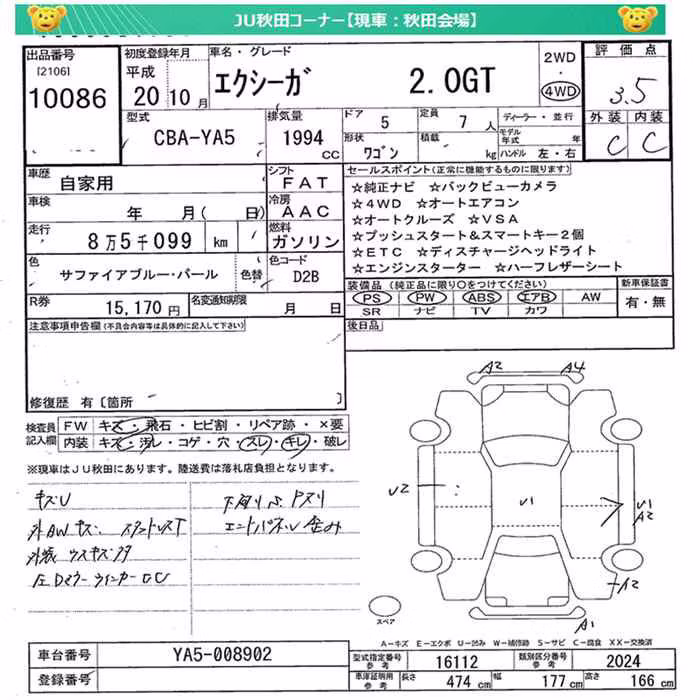 JU秋田コーナー【現車：秋田会場】
出品番号
[2106]
10086
初度登録年月
平成
20年10月
車名・グレード
エクシーガ 2.0GT
2WD
・
4WD
評価点
3.5
外装 内装
C C
型式
CBA-YA5
排気量
1994
CC
ドア 5
形状 ワゴン
定員 7 人
積載 kg
ディーラー・並行
モデル年式 年
ハンドル 左・右
車歴
自家用
シフト
FAT
車検
年 月( 日)
冷房
AAC
走行
8万5千099 km
燃料
ガソリン
色
サファイアブルー・パール
色替
色コード
D2B
R券
15,170円
名変通知期限
月 日
セールスポイント(正常に機能するものに限ります)
☆純正ナビ ☆バックビューカメラ
☆4WD ☆オートエアコン
☆オートクルーズ ☆VSA
☆プッシュスタート&スマートキー2個
☆ETC ☆ディスチャージヘッドライト
☆エンジンスターター ☆ハーフレザーシート
装備品 (純正品に限り○をつけてください)
PS PW ABS エアB AW
SR ナビ TV カワ
新車保証書
有・無
注意事項申告欄(不具合内容等は具体的に記入して下さい)
後日品
修復歴 有〔箇所 〕
検査員
記入欄
FW キズ・飛石・ヒビ割・リペア跡・×要
内装 キズ・汚レ・コゲ・穴・スレ・キレ・破レ
※現車はJU秋田にあります。陸送費は落札店負担となります。
キズU
外AWキズ
外装ウスキズ
下廻りサビ
A2 A4
U2
U1
U1
A2
A2
A1
スペア
A－キズ E－エクボ U－凹み W－補修跡 S－サビ C－腐食 XX－交換済
車台番号
YA5-008902
登録番号
型式指定番号
参考
16112
類別区分番号
参考
2024
車庫証明用
参考
長さ 474 cm
幅 177 cm
高さ 166 cm